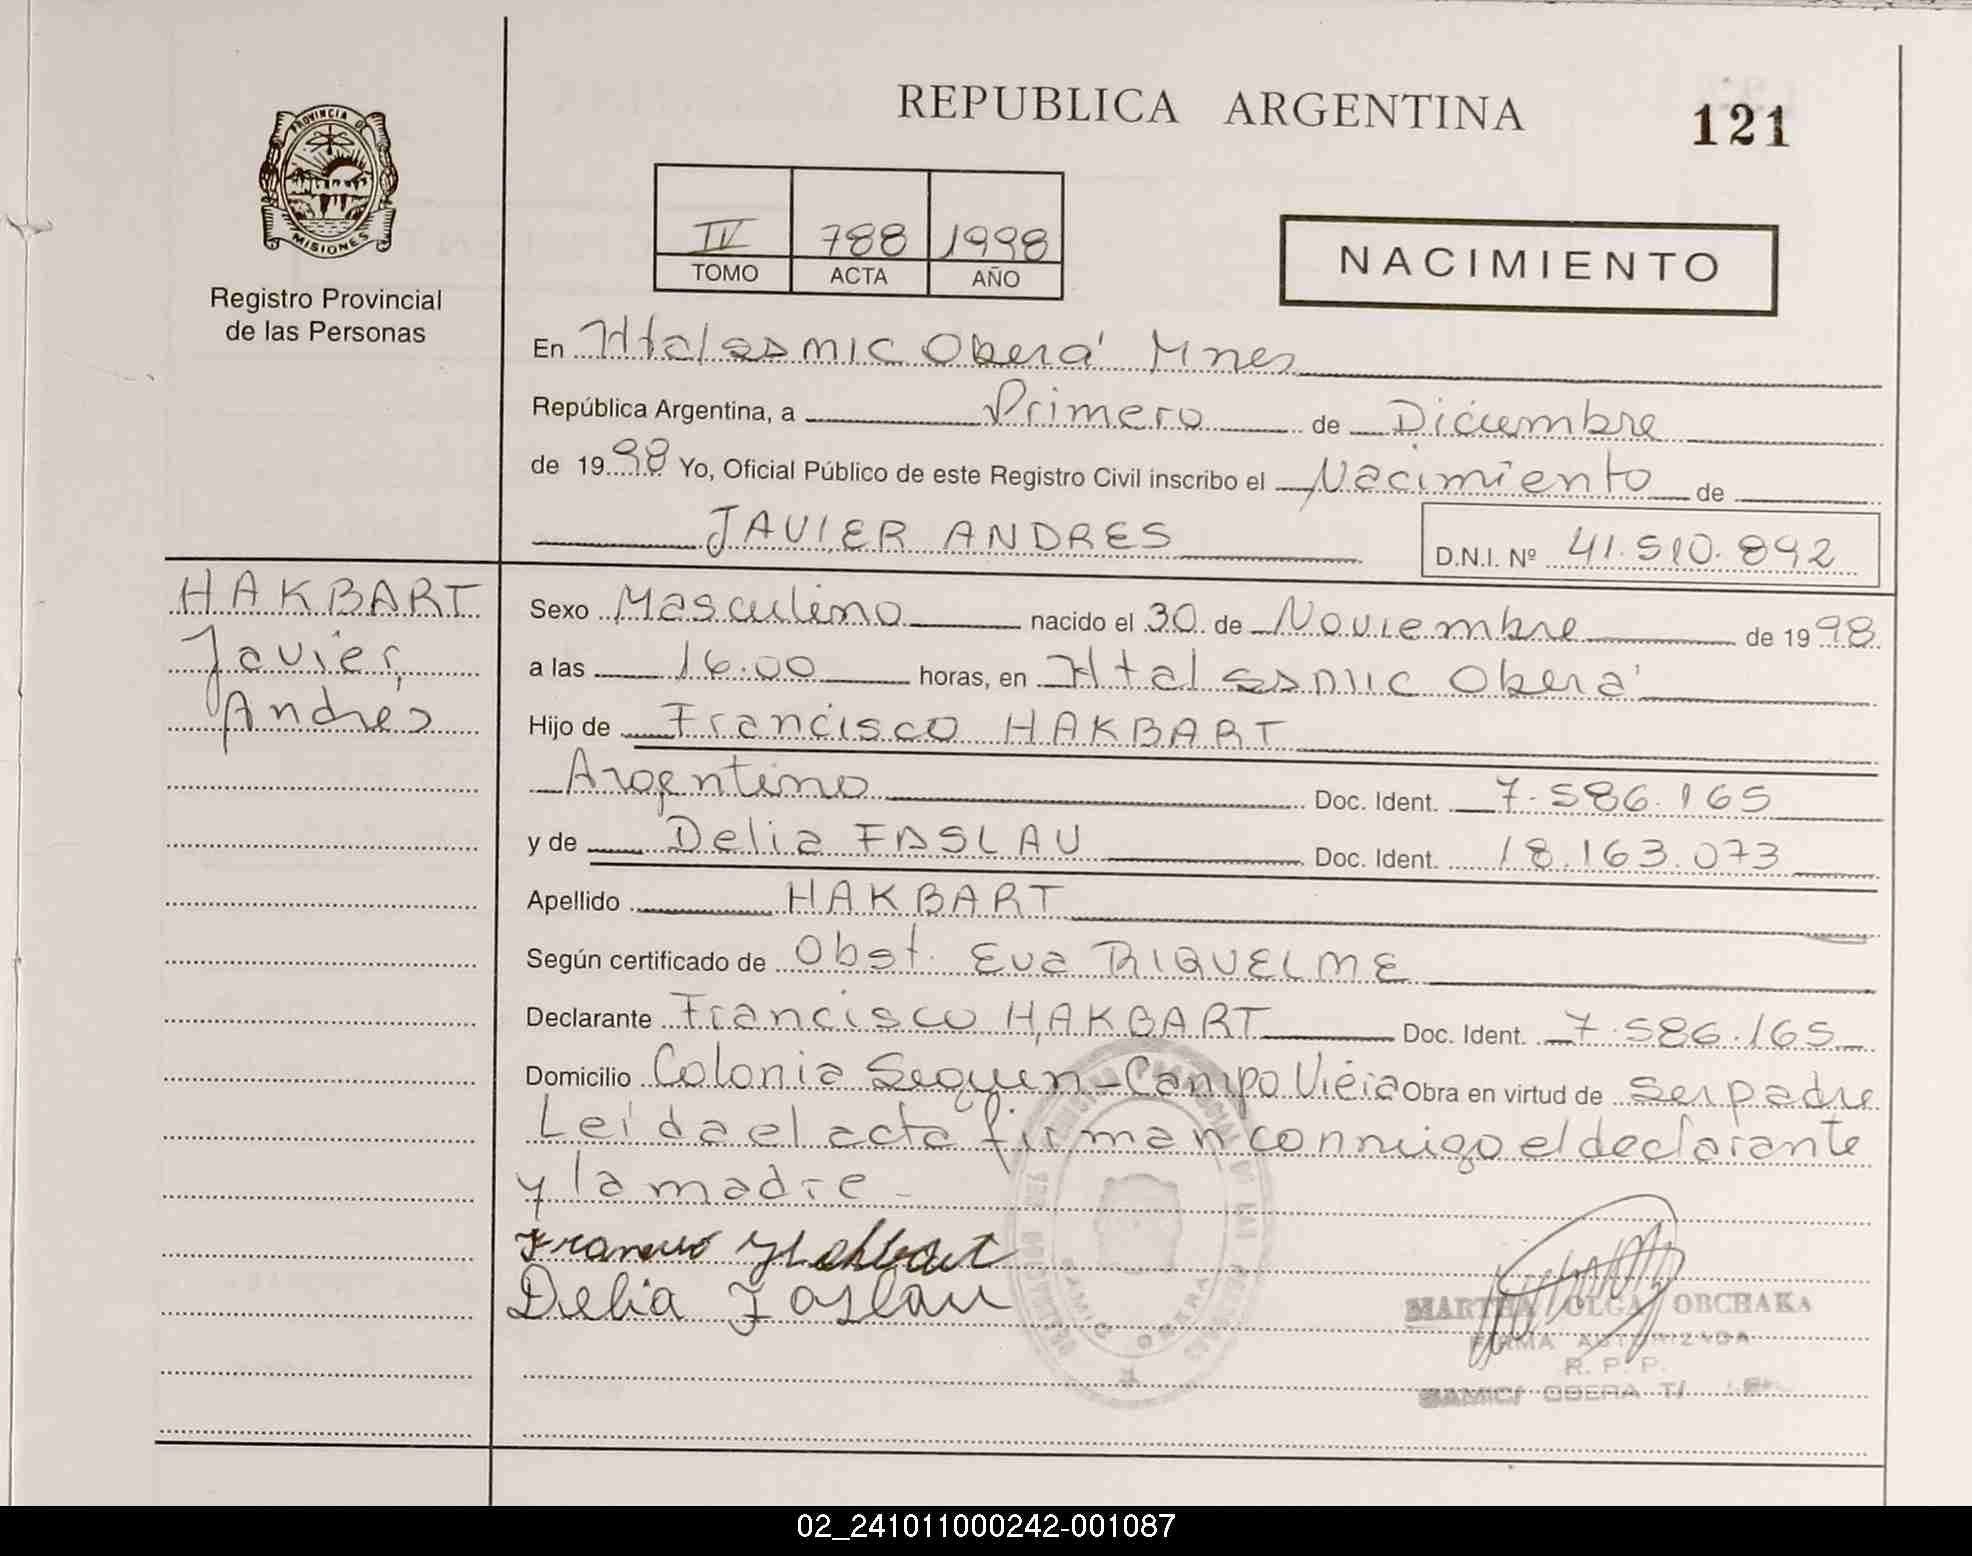 REPUBLICA ARGENTINA
121
PROVINCIA DE
MISIONES
Registro Provincial
de las Personas
IV 788 1998
TOMO ACTA AÑO
NACIMIENTO
En Htal SAMIC Oberá Mnes
República Argentina, a Primero de Diciembre
de 1998 Yo, Oficial Público de este Registro Civil inscribo el Nacimiento de
JAVIER ANDRES
D.N.I. Nº 41.510.892
HAKBART
Javier
Andres
Sexo Masculino nacido el 30 de Noviembre de 1998
a las 16.00 horas, en Htal SAMIC Oberá
Hijo de Francisco HAKBART
Argentino Doc. Ident. 7.586.165
y de Delia FASLAU Doc. Ident. 18.163.073
Apellido HAKBART
Según certificado de Obst. Eva RIQUELME
Declarante Francisco HAKBART Doc. Ident. 7.586.165
Domicilio Colonia Seguin - Campo Viera Obra en virtud de ser padre
Leída el acta firman conmigo el declarante
y la madre -
Francisco Hakbart
Delia Faslau
MARTHA OLGA OBCHAKA
FIRMA AUTORIZADA
R. P. P.
SAMIC OBERA T/
02_241011000242-001087